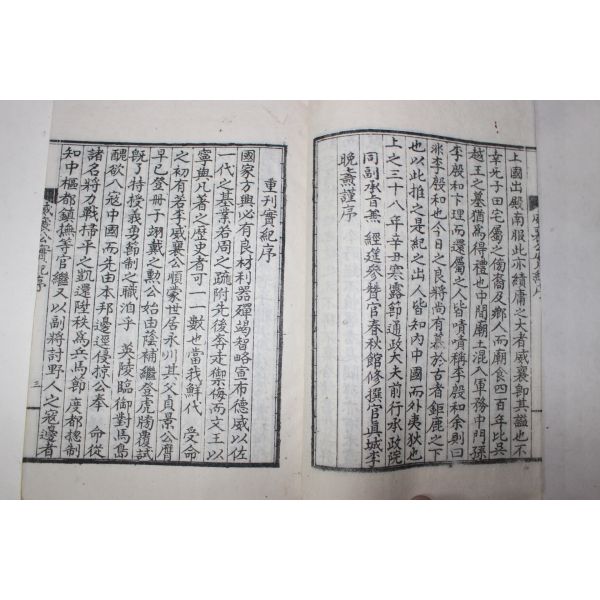 上國出殿南服此亦績庸之大者威襄卽其諡也不
幸光子田宅屬之傍裔及鄉人而廟食四百年比吳
越王之墓猶爲得禮也中間廟土混入軍務中門孫
李殷和卞理而還屬之人皆嘖嘖稱李殷和余則曰
非殷和也今日之良將尚有慕於古者鉅鹿之下
也以此推之是紀之出人皆知內中國而外夷狄也
上之三十八年辛丑寒露節通政大夫前行承政院
同副承旨兼 經筵參贊官春秋館修撰官眞城李
晩燾謹序
重刊實紀序
國家方興必有良材利器殫竭智略宣布德威以佐
一代之基業若周之疏附先後奔走禦侮而文王以
寧具凡著之歷史者可一一數也當我鮮代 受命
之初有若李威襄公順蒙世居永川其父貞景公膺
早已登冊于翊戴之勳公始由蔭補繼登虎牓覆試
旣了持授義勇節制之職洎乎 英陵臨御對馬島
醜欲入寇中國而先由本邦邊逕侵掠公奉 命從
諸名將力戰掃平之凱還陞秩爲兵馬節度都摠制
知中樞都鎭撫等官繼又以副將討野人之寇邊者
威襄公實紀序
三